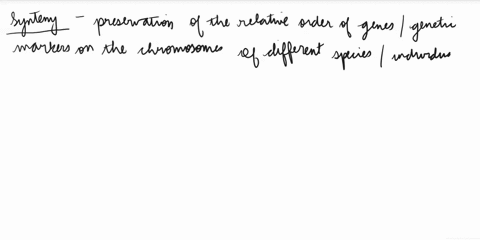 Synteny - preservation of the relative order of genes / genetic
markers on the chromosomes of different species / individus